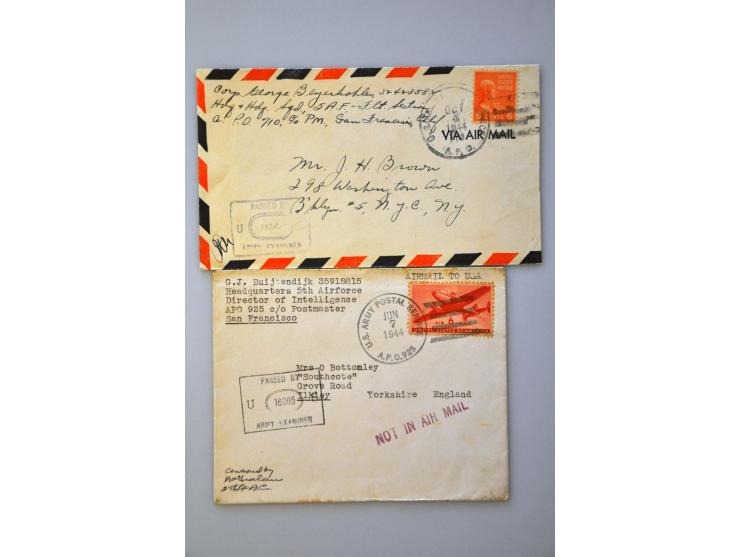 Corp. George Beyerkohler 32423582
Hdq & Hdq. Sqd, 5 A.F. - Flt. Section
A.P.O. 710, c/o PM, San Francisco, Calif
UNITED STATES POSTAGE
6 CENTS 6
OCT
4
1944
A.P.O.
VIA AIR MAIL
Mr. J. H. Brown
298 Washington Ave.
B'klyn. #5, N.Y.C., N.Y.
PASSED BY
U
ARMY EXAMINER
AIRMAIL TO USA
G.J. Buijtendijk 35918815
Headquarters 5th Airforce
Director of Intelligence
APO 925 c/o Postmaster
San Francisco
U.S. ARMY POSTAL SERVICE
JUN
7
1944
A.P.O. 925
AIR 6
UNITED STATES OF AMERICA
Mrs O Bottomley
"Southcote"
Grove Road
Ilkley Yorkshire England
PASSED BY
U 16005
ARMY EXAMINER
NOT IN AIR MAIL
Censored by